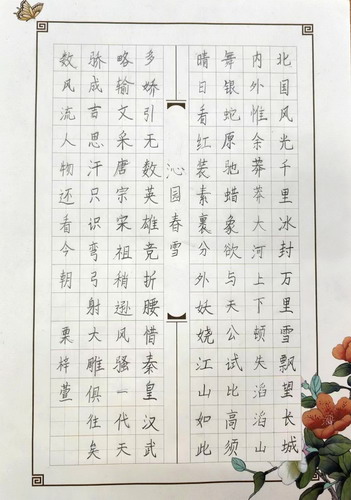 北国风光千里冰封万里雪飘望长城
内外惟余莽莽大河上下顿失滔滔山
舞银蛇原驰蜡象欲与天公试比高须
晴日看红装素裹分外妖娆江山如此
沁园春雪
多娇引无数英雄竞折腰惜秦皇汉武
略输文采唐宗宋祖稍逊风骚一代天
骄成吉思汗只识弯弓射大雕俱往矣
数风流人物还看今朝
栗梓萱